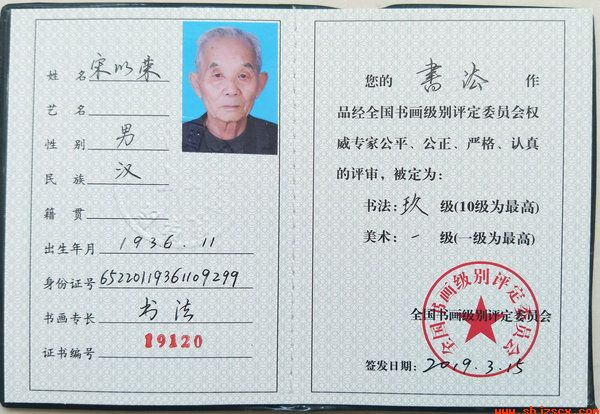 姓 名 宋以荣
艺 名
性 别 男
民 族 汉
籍 贯
出生年月 1936.11
身份证号 65220119361109299
书画专长 书法
证书编号 19120
您的 书法 作
品经全国书画级别评定委员会权
威专家公平、公正、严格、认真
的评审，被定为：
书法：玖 级(10级为最高)
美术：一 级(一级为最高)
全国书画级别评定委员会
全国书画级别评定委员会
签发日期：2019.3.15
www.shjzscx.com